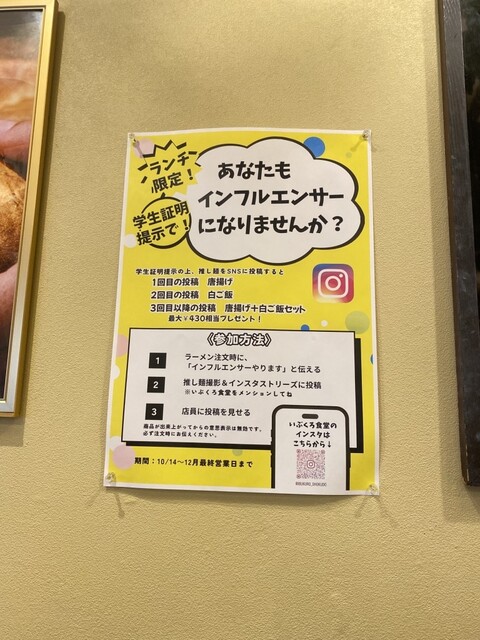 ランチ
限定！
学生証明
提示で！
あなたも
インフルエンサー
になりませんか？
学生証明提示の上、推し麺をSNSに投稿すると
1回目の投稿　唐揚げ
2回目の投稿　白ご飯
3回目以降の投稿　唐揚げ+白ご飯セット
最大￥430相当プレゼント！
〈参加方法〉
1
ラーメン注文時に、
「インフルエンサーやります」と伝える
2
推し麺撮影＆インスタストリーズに投稿
※いぶくろ食堂をメンションしてね
3
店員に投稿を見せる
商品が出来上がってからの意思表示は無効です。
必ず注文時にお伝えください。
いぶくろ食堂の
インスタは
こちらから↓
期間：10/14〜12月最終営業日まで